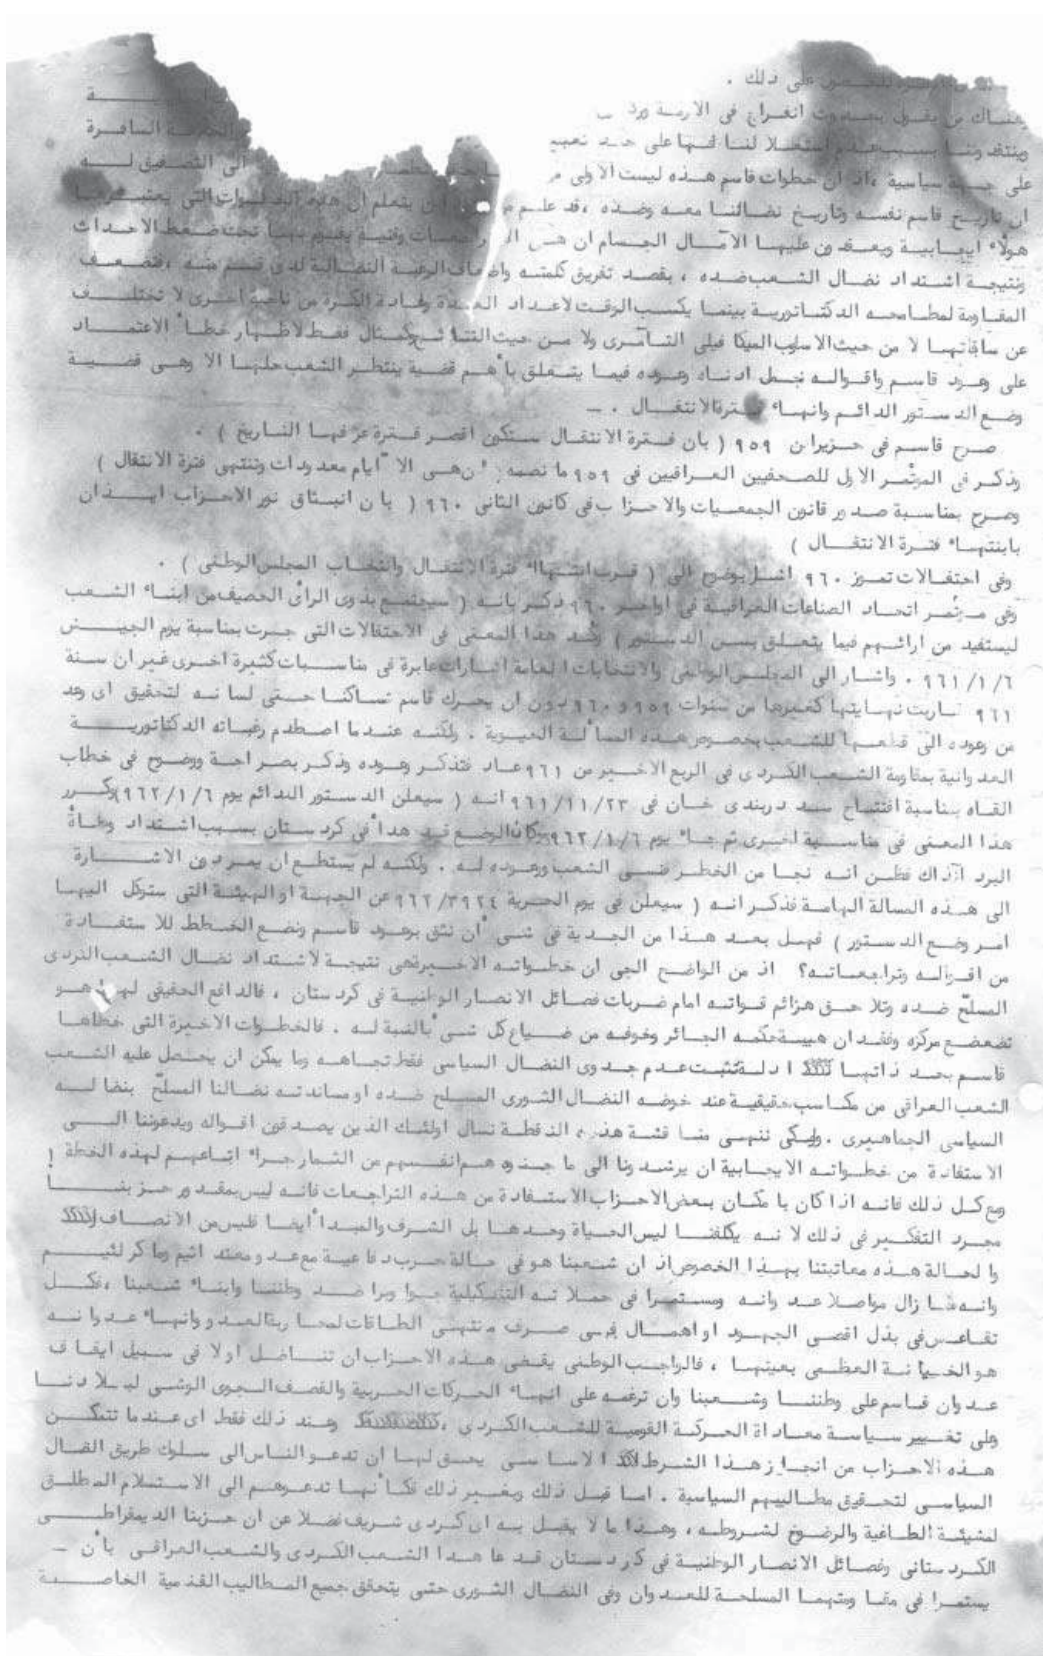 على ذلك .
وهناك من يقول بحدوث انفراج في الازمة
وينتقدوننا بسبب عدم استغلالنا لها على حد تعبير السافرة
على جبهة سياسية ،اذ ان خطوات قاسم هذه ليست الاولى الى التصفيق لـــه
ان تاريخ قاسم نفسه وتاريخ نضالنا معه وضده ،قد علم ان هذه الخطوات التي يعتبرهـا
هولاء ايجابية ويعقدون عليها الآمال الجسام ان هي الا تراجعات وقتية يقوم بها تحت ضغط الاحداث
ونتيجة اشتداد نضال الشعب ضده ، بقصد تفريق كلمته واضعاف الرغبة النضالية لدى قسم منه ، فتضعف
المقاومة لمطامحه الدكتاتورية بينما يكسب الوقت لاعداد العدة واعادة الكرة من ناحية اخرى لا تختلف
عن سابقاتها لا من حيث الاسلوب الميكافيلي التآمرى ولا من حيث النتائج وكمثال فقط لاظهار خطأ الاعتمـاد
على وعود قاسم واقواله نجمل ادناه وعوده فيما يتعلق بأهم قضية ينتظر الشعب حلها الا وهي قضيـة
وضع الدستور الدائم وانهاء فترة الانتقال . ــ
صرح قاسم في حزيران ٩٥٩ ( بان فترة الانتقال ستكون اقصر فترة عرفها التاريخ ) .
وذكر في المؤتمر الاول للصحفيين العراقيين في ٩٥٩ ما نصه ان هي الا ايام معدودات وتنتهي فترة الانتقال )
وصرح بمناسبة صدور قانون الجمعيات والاحزاب في كانون الثاني ٩٦٠ ( بان انبثاق نور الاحزاب ايـذان
بابنتهاء فترة الانتقال )
وفي احتفالات تموز ٩٦٠ اشار بوضوح الى ( قرب انتهاء فترة الانتقال وانتخاب المجلس الوطني ) .
وفي مؤتمر اتحاد الصناعات العراقية في اواخر ٩٦٠ ذكر بانه ( سيجتمع بذوى الرأى الحصيف من ابناء الشعب
ليستفيد من ارائهم فيما يتعلق بسن الدستور ) واكد هذا المعنى في الاحتفالات التي جرت بمناسبة يوم الجيش
٩٦١/١/٦ . واشار الى المجلس الوطني والانتخابات العامة اشارات عابرة في مناسبات كثيرة اخرى غير ان سنة
٩٦١ قاربت نهايتها كغيرها من سنوات ٩٥٩ و ٩٦٠ بدون ان يحرك قاسم ساكنا حتى لسانه لتحقيق اى وعد
من وعوده التي قطعها للشعب بخصوص هذه المسألة الحيوية . ولكنه عندما اصطدم رغباته الدكتاتوريـة
العدوانية بمقاومة الشعب الكردى في الربع الاخير من ٩٦١ عاد فتذكر وعوده وذكر بصراحة ووضوح في خطاب
القاه بمناسبة افتتاح سد دربندى خان في ٩٦١/١١/٢٣ انه ( سيعلن الدستور الدائم يوم ٩٦٢/١/٦) وكرر
هذا المعنى في مناسبة اخرى ثم جاء يوم ٩٦٢/١/٦ وكان الوضع قد هدأ في كردستان بسبب اشتداد وطأة
البرد آنذاك فظن انه نجا من الخطر فنسى الشعب ووعوده له . ولكنه لم يستطع ان يمر دون الاشـارة
الى هذه المسالة الهامة فذكر انه ( سيعلن في يوم الحرية عن الجهة او الهيئة التي ستوكل اليهـا
امر وضع الدستور ) فهل بعد هذا من الجدية في شيء أن نثق بوعود قاسم ونضع الخطط للاستفـادة
من اقواله وتراجعاته؟ اذ من الواضح الجي ان خطواته الاخيرة هي نتيجة لاشتداد نضال الشعب الكردى
المسلح ضده وتلاحق هزائم قواته امام ضربات فصائل الانصار الوطنية في كردستان ، فالدافع الحقيقي لها هـو
تضعضع مركزه وفقدان هيبة حكمه الجائر وخوفه من ضياع كل شيء بالنسبة له . فالخطوات الاخيرة التي خطاهـا
قاسم بحد ذاتها ادلة تثبت عدم جدوى النضال السياسي فقط تجاهه وما يمكن ان يحصل عليه الشعـب
الشعب العراقي من مكاسب حقيقية عند خوضه النضال الثورى المسلح ضده او مساندته نضالنا المسلح بنضالـه
السياسي الجماهيرى . ولكي ننتهي من مناقشة هذه النقطة نسأل اولئك الذين يصدقون اقواله ويدعوننا الـى
الاستفادة من خطواته الايجابية ان يرشدونا الى ما جنوه هم انفسهم من الثمار جراء اتباعهم لهذه الخطة !
ومع كل ذلك فانه اذا كان بامكان بعض الاحزاب الاستفادة من هذه التراجعات فانه ليس بمقدور حزبنـا
مجرد التفكير في ذلك لانه يكلفنا ليس الحياة وحدها بل الشرف والمبدأ ايضا فليس من الانصاف
والحالة هذه معاتبتنا بهذا الخصوص اذ ان شعبنا هو في حالة حرب دفاعية مع عدو معتد اثيم وماكر لئيـم
وانه ما زال مواصلا عدوانه ومستمرا في حملاته التنكيلية جوا وبرا ضد وطننا وابناء شعبنا ،فكـل
تقاعس في بذل اقصى الجهود او اهمال فرصى صرف منتهى الطاقات لمحاربة العدو وانهاء عدوانـه
هو الخيانة العظمى بعينها ، فالواجب الوطني يقضي هذه الاحزاب ان تناضل اولا في سبيل ايقاف
عدوان قاسم على وطننا وشعبنا وان ترغمه على انهاء الحركات الحربية والقصف الجوى الوحشي لبلادنـا
وعلى تغيير سياسة معاداة الحركة القومية للشعب الكردى ، وعند ذلك فقط اى عندما تتمكـن
هذه الاحزاب من انجاز هذا الشرط الاساسي يحق لها ان تدعو الناس الى سلوك طريق النضال
السياسي لتحقيق مطاليبهم السياسية . اما قبل ذلك وبغير ذلك فكأنها تدعوهم الى الاستسلام المطلق
لمشيئة الطاغية والرضوخ لشروطه ، وهذا ما لا يقبل به اى كردى شريف فضلا عن ان حزبنا الديمقراطـي
الكردستاني وفصائل الانصار الوطنية في كردستان قد عاهدا الشعب الكردى والشعب العراقي بأن ــ
يستمرا في مقاومتهما المسلحة للعدوان وفي النضال الثورى حتى يتحقق جميع المطاليب القدمية الخاصـة